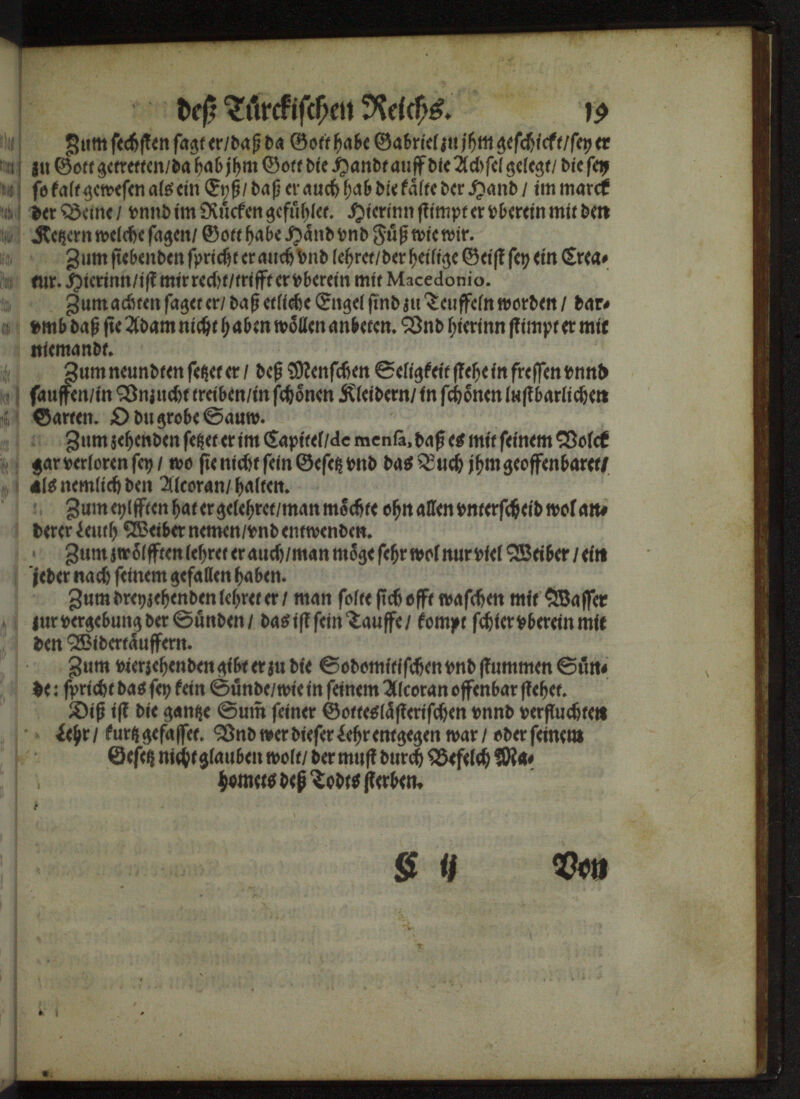 deß Türckischen Reichs. 19
Zum sechsten sagt er/daß da Gott habe Gabriel zu jhm geschickt/sey er
zu Gott getretten/da hab jhm Gott die Handt auff die Achsel gelegt/ die sey
so kalt gewesen als ein Eyß/ daß er auch hab die kälte der Hand / im marck
der Beine / vnnd im Rücken gefühlet. Hierinn stimpt er vberein mit den
Ketzern welche sagen/ Gott habe Händ vnd Füß wie wir.
Zum siebenden spricht er auch vnd lehret/der heilige Geist sey ein Crea-
tur. Hierinn/ist mir recht/trifft er vberein mit Macedonio.
Zum achten saget er/ daß etliche Engel sind zu Teuffeln worden / dar-
vmb daß sie Adam nicht haben wöllen anbeten. Vnd hierinn stimpt er mit
niemandt.
Zum neundten setzet er / deß Menschen Seligkeit stehe in fressen vnnd
sauffen/in Vnzucht treiben/in schönen Kleidern/ in schönen lustbarlichen
Garten. O du grobe Sauw.
Zum zehenden setzet er im Capitel/de mensa, daß es mit seinem Volck
gar verloren sey / wo sie nicht sein Gesetz vnd das Buch jhm geoffenbaret/
als nemlich den Alcoran/ halten.
Zum eylfften hat er gelehret/man möchte ohn allen vnterscheid wol an-
derer Leuth Weiber nemen/vnd entwenden.
Zum zwölfften lehret er auch/man möge sehr wol nur viel Weiber / ein
jeder nach seinem gefallen haben.
Zum dreyzehenden lehret er / man solte sich offt waschen mit Wasser
zur vergebung der Sünden / das ist sein Tauffe / kompt schier vberein mit
den Widertäuffern.
Zum vierzehenden gibt er zu die Sodomitischen vnd stummen Sün-
de: spricht das sey kein Sünde/wie in seinem Alcoran offenbar stehet.
Diß ist die gantze Sum̃ seiner Gotteslästerischen vnnd verfluchten
Lehr / kurtz gefasset. Vnd wer dieser Lehr entgegen war / oder seinem
Gesetz nicht glauben wolt/ der must durch Befelch Ma-
homets deß Todts sterben.
F ij Von